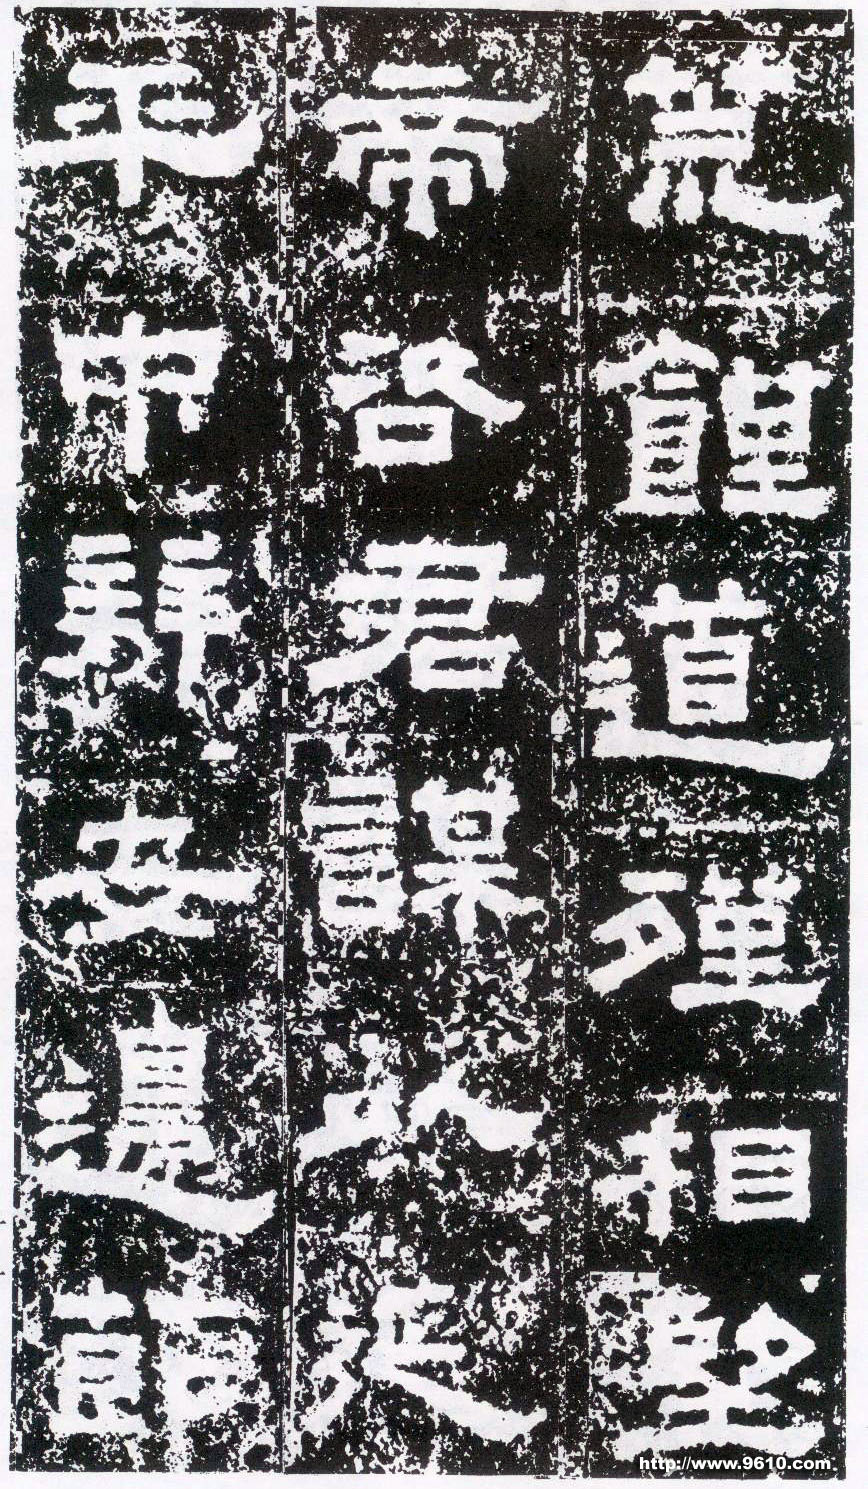 荒饉道殣相望
帝咨君謀以延
平中拜安邊節
http://www.9610.com